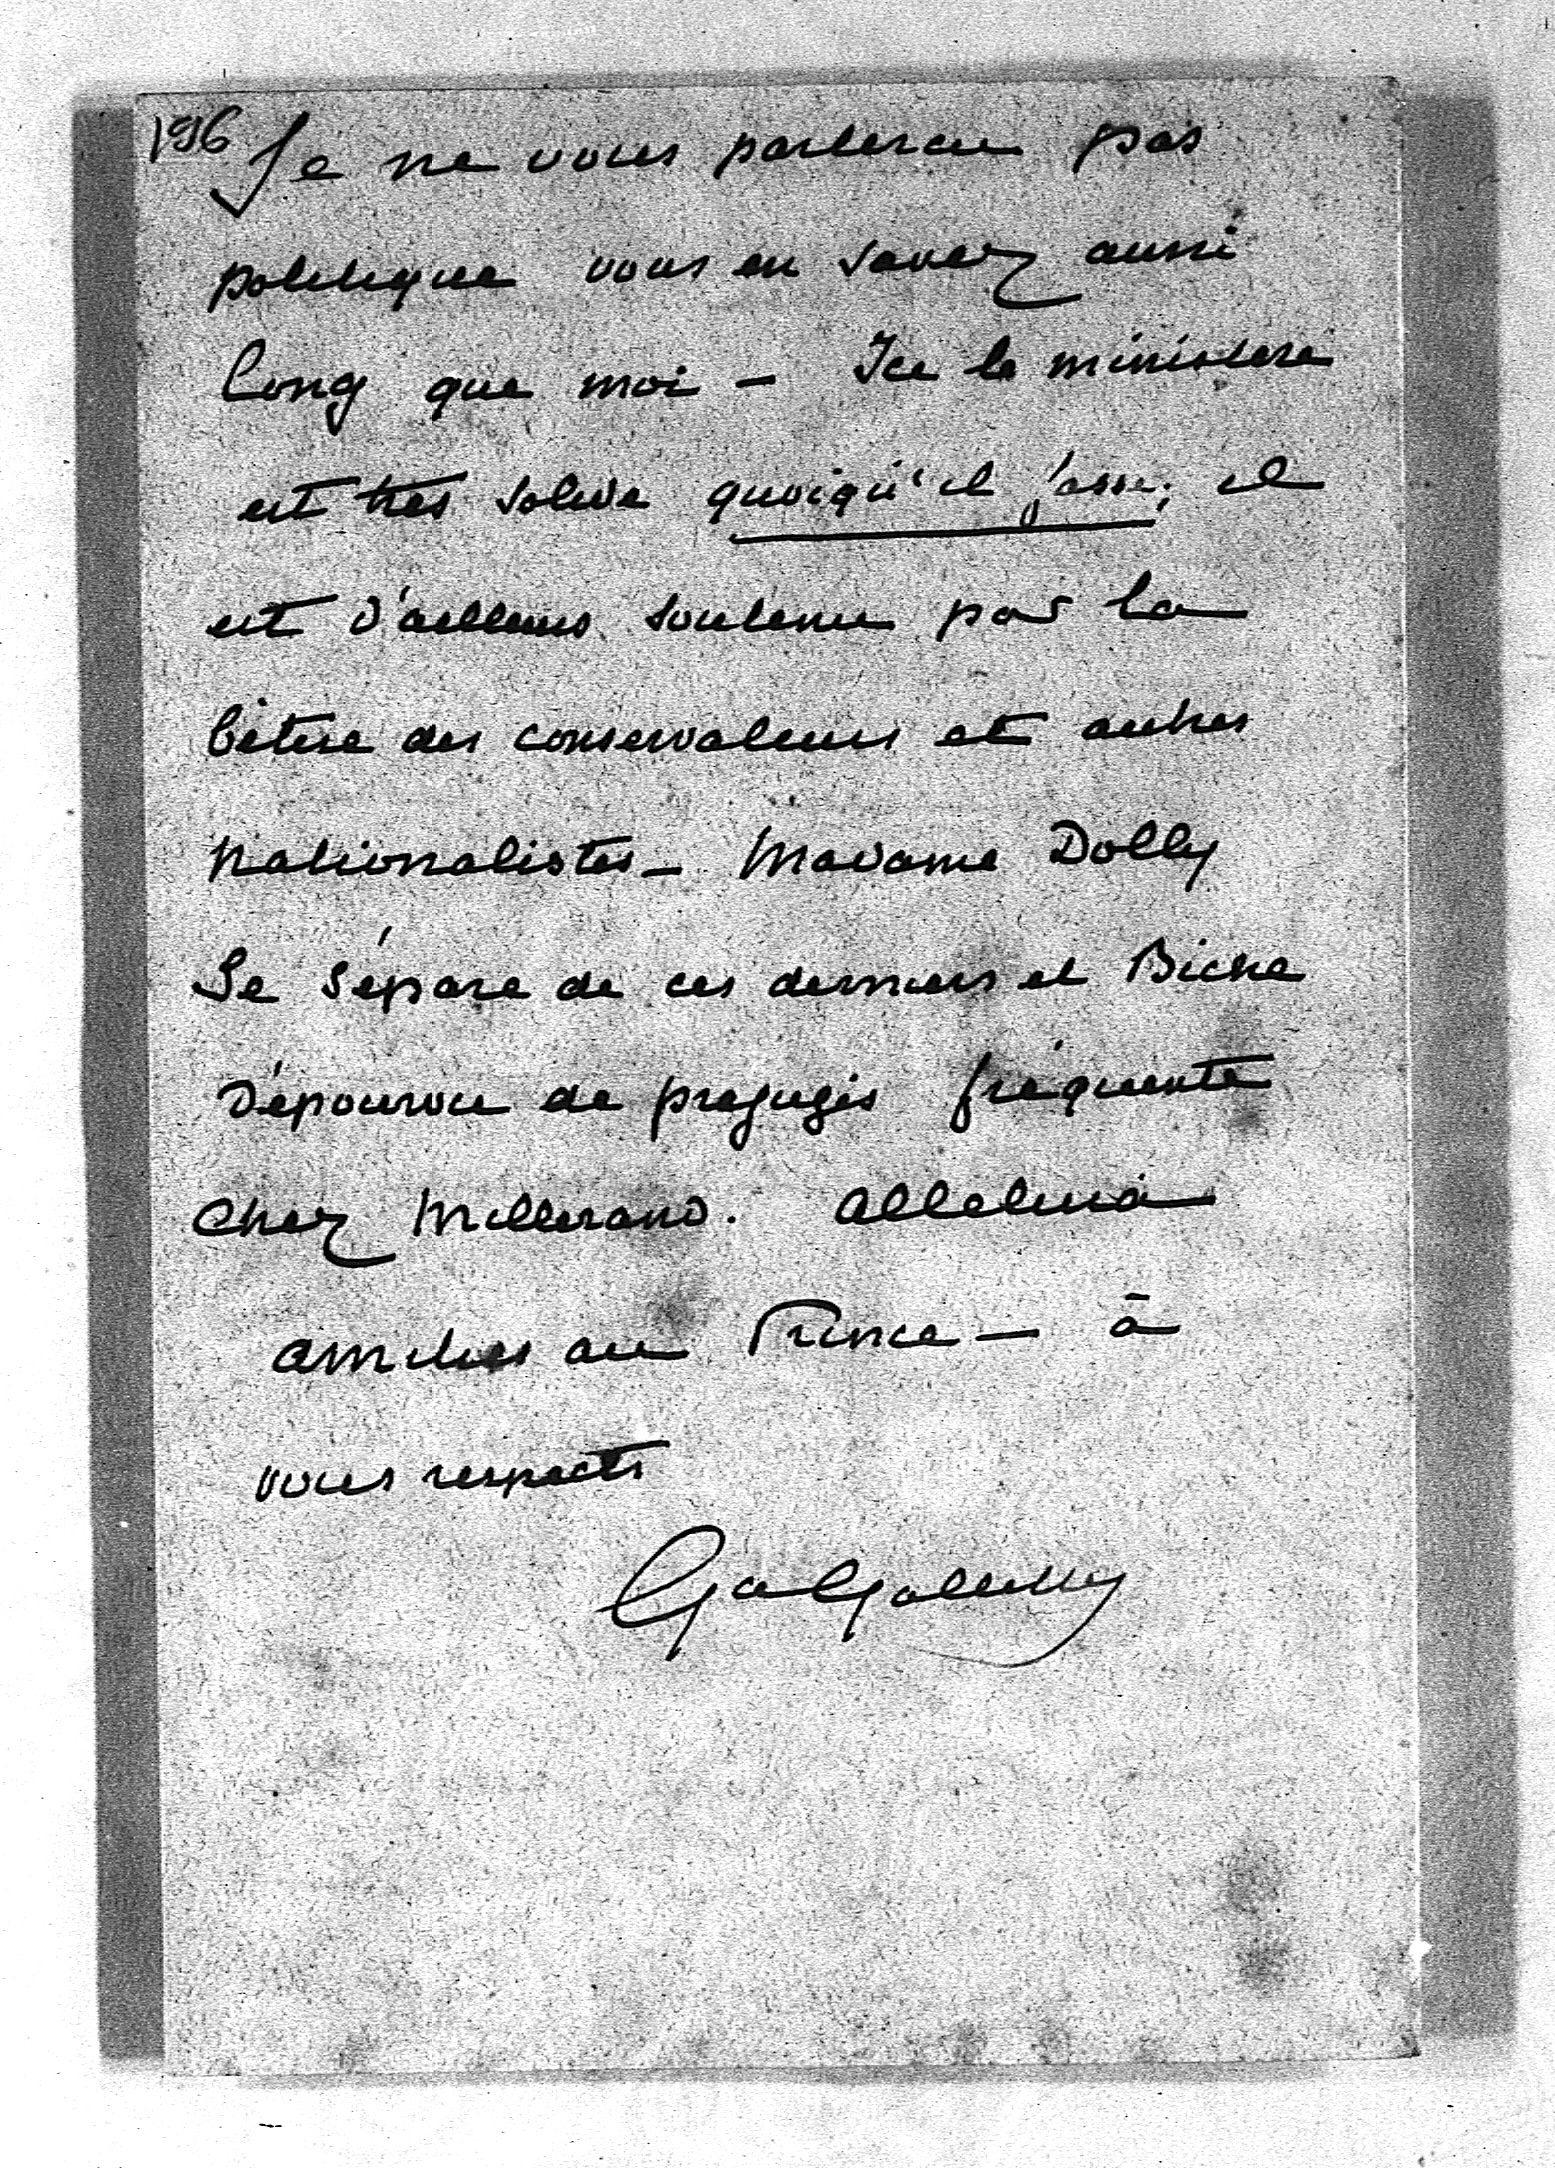 196
Je ne vous parlerai pas
politique vous en savez aussi
long que moi – Ici le ministère
est très solide quoiqu'il fasse, il
est d'ailleurs soutenu par la
bêtise des conservateurs et autres
nationalistes – Madame Dolly
se sépare de ces derniers et Biche
dépourvu de préjugés fréquente
chez Millerand. Alleluia
amitiés au Prince – à
vous respects
GaGalliffet